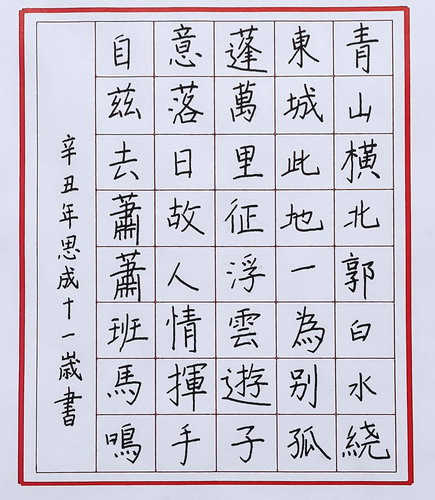 青山橫北郭白水繞
東城此地一為別孤
蓬萬里征浮雲遊子
意落日故人情揮手
自茲去蕭蕭班馬鳴
辛丑年思成十一歲書